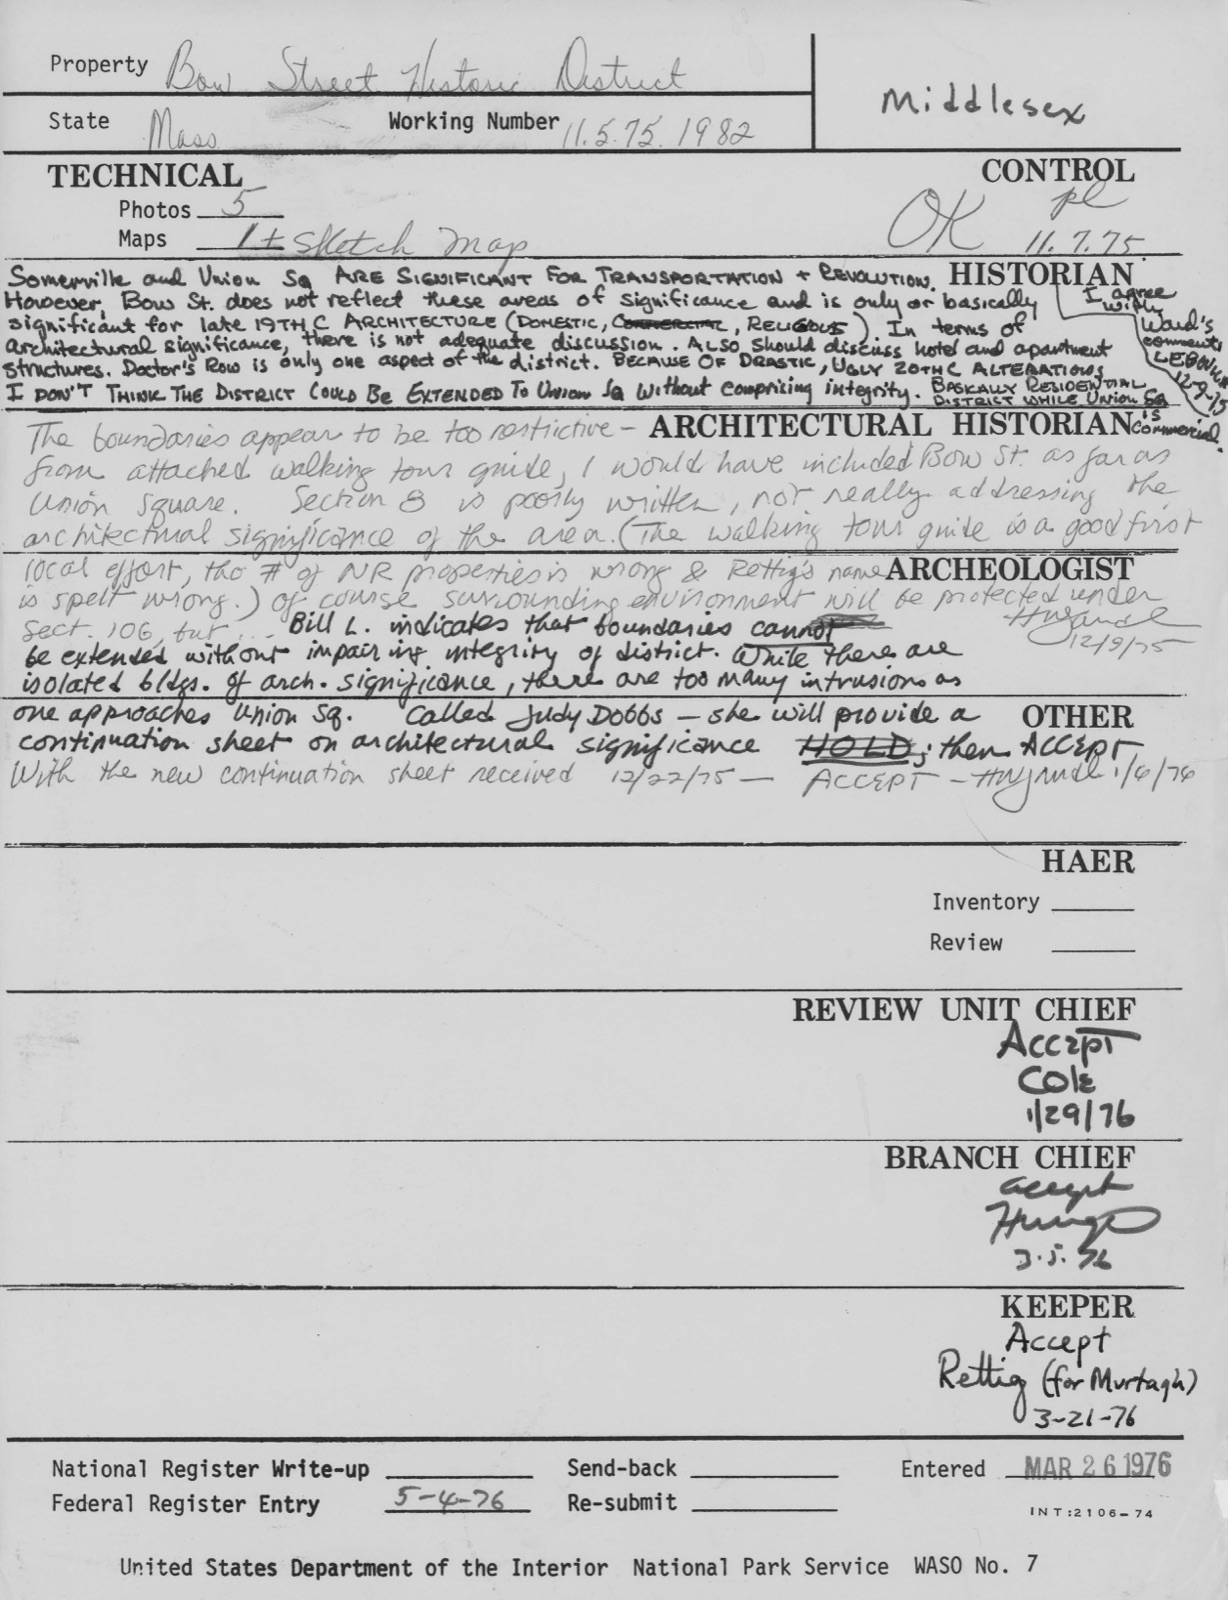 Property Bow Street Historic District
Middlesex
State Mass. Working Number 11.5.75.1982
TECHNICAL
Photos 5
Maps 1 + sketch map
CONTROL
OK pl
11.7.75
Somerville and Union Sq ARE SIGNIFICANT FOR TRANSPORTATION + REVOLUTION. HISTORIAN
However, Bow St. does not reflect these areas of significance and is only or basically
significant for late 19TH C ARCHITECTURE (DOMESTIC, COMMERCIAL, RELIGIOUS). In terms of
architectural significance, there is not adequate discussion. ALSO should discuss hotel and apartment
structures. Doctor's Row is only one aspect of the district. BECAUSE OF DRASTIC, UGLY 20TH C ALTERATIONS
I DON'T THINK THE DISTRICT COULD BE EXTENDED TO UNION SQ without comprising integrity. BASICALLY RESIDENTIAL
DISTRICT WHILE UNION SQ
is commercial.
I agree
with
Ward's
comments
LEBOVICH
12-9-75
The boundaries appear to be too restrictive - ARCHITECTURAL HISTORIAN
from attached walking tour guide, I would have included Bow St. as far as
Union Square. Section 8 is poorly written, not really addressing the
architectural significance of the area. (The walking tour guide is a good first
local effort, tho # of NR properties is wrong & Rettig's name ARCHEOLOGIST
is spelt wrong.) Of course surrounding environment will be protected under
Sect. 106, but...
12/9/75
Bill L. indicates that boundaries cannot
be extended without impairing integrity of district. While there are
isolated bldgs. of arch. significance, there are too many intrusions as
one approaches Union Sq. Called Judy Dobbs - she will provide a OTHER
continuation sheet on architectural significance HOLD; then ACCEPT
With the new continuation sheet received 12/22/75 - ACCEPT - 1/6/76
HAER
Inventory
Review
REVIEW UNIT CHIEF
Accept
Cole
1/29/76
BRANCH CHIEF
accept
3.5.76
KEEPER
Accept
Rettig (for Murtagh)
3-21-76
National Register Write-up Send-back Entered MAR 26 1976
Federal Register Entry 5-4-76 Re-submit
INT:2106-74
United States Department of the Interior National Park Service WASO No. 7